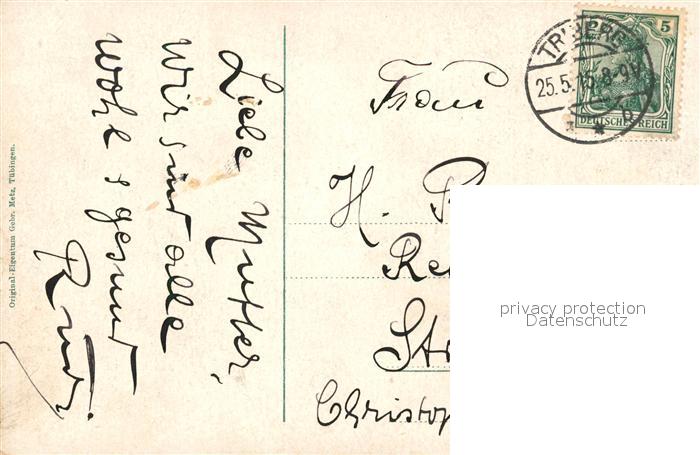 Liebe Mutter,
wir sind alle
wohl & gesund
Rudi.
Original-Eigentum Gebr. Metz, Tübingen.
Frau
H.
Str
Christop
5
DEUTSCHES REICH
TRIBERG
25.5.15.8-9V.
privacy protection
Datenschutz